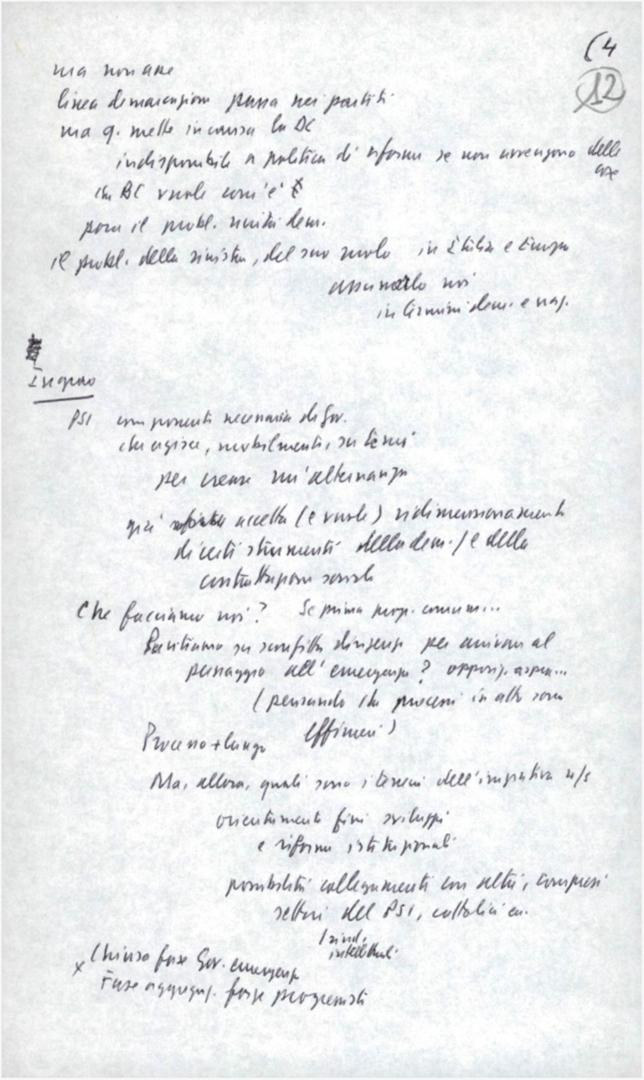 (4
12
ma non
linea demarcazione passa nei partiti
ma q. mette in causa la DC
indisponibile a politica di riforma se non avvengono delle
cose
la DC vuole
pone il probl. unità dem.
il probl. della sinistra, del suo ruolo in Italia e Europa
assumerlo noi
in termini dem. e naz.
Ingrao
PSI componente necessaria di Gov.
che agisce, mobilmente, su temi
per creare un'alternanza
già accetta (e vuole) ridimensionamento
di certi strumenti della dem. / e della
contrattazione sociale
Che facciamo noi? Se prima prop. comun...
Puntiamo su sconfitta dirigenze per arrivare al
passaggio all'emergenza? opposiz. aspra...
(pensando che processi in atto sono
effimeri)
Processo + lungo
Ma, allora, quali sono i terreni dell'iniziativa n/s
orientamento fini sviluppi
e riforme istituzionali
possibilità collegamenti con altri, compresi
settori del PSI, cattolici ecc.
/ sind.
intellettuali
x Chiusa fase Gov. emergenza
Fase aggregaz. forze progressiste